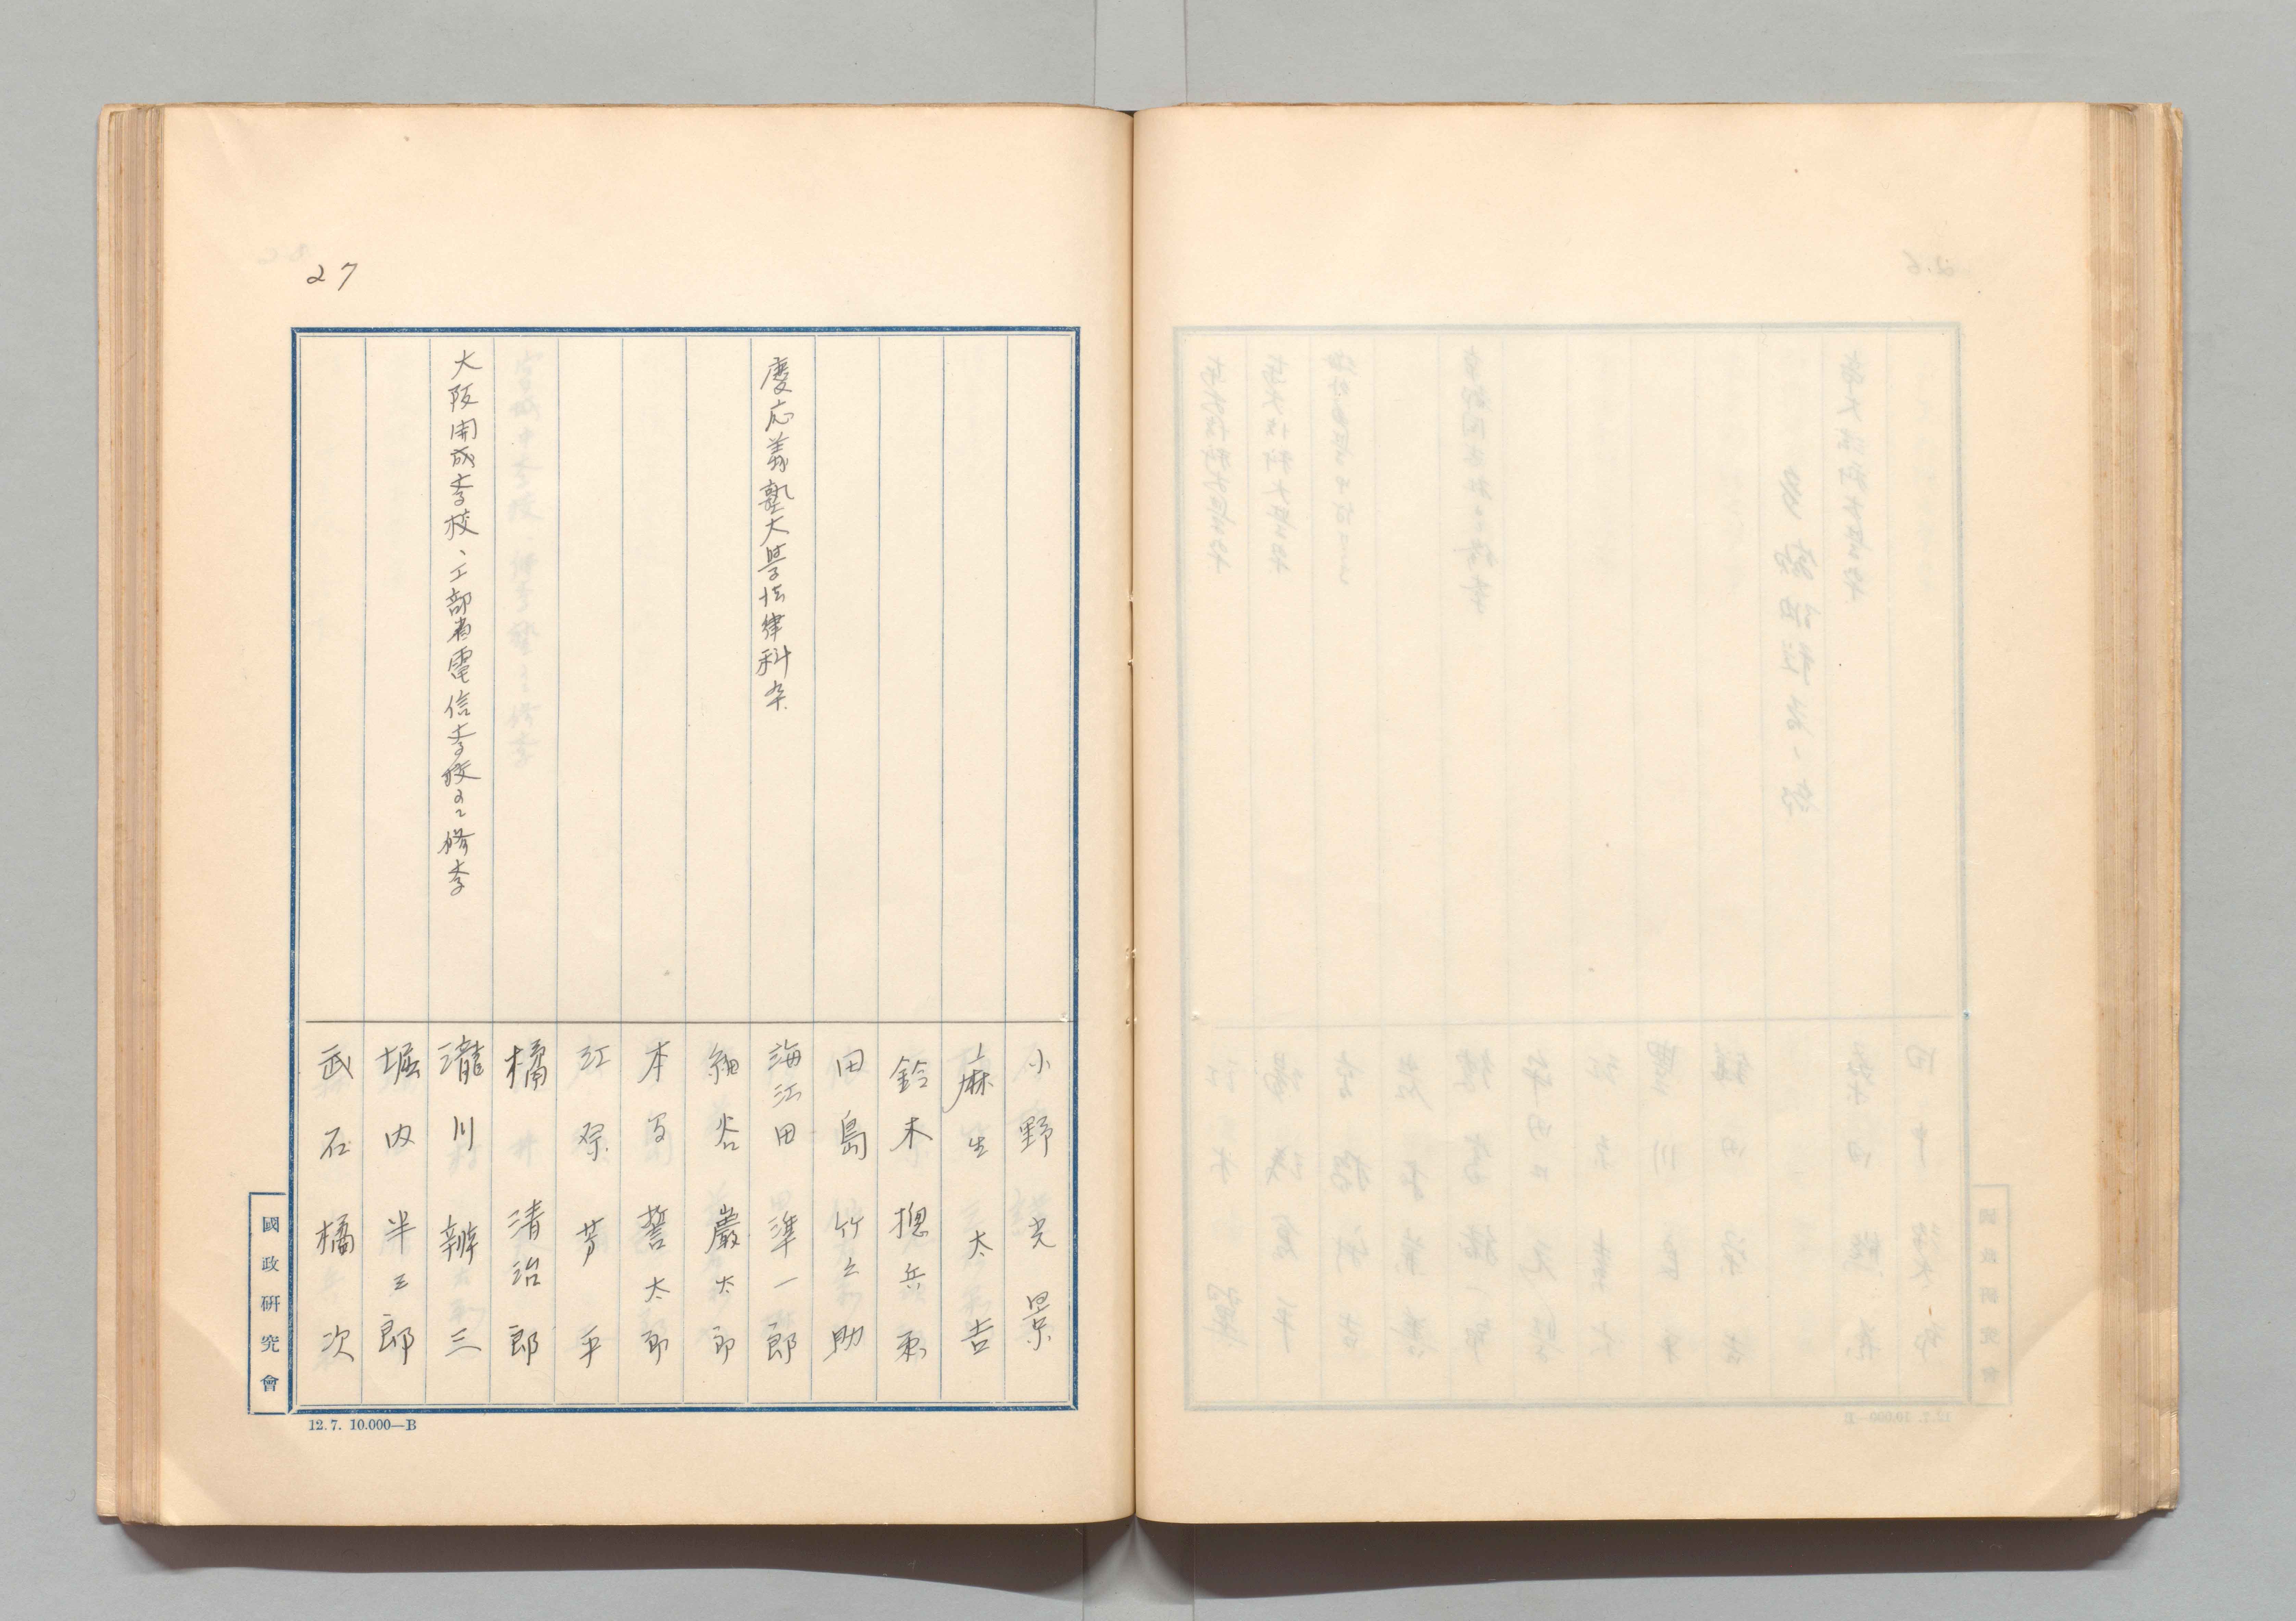 27
小野光景
麻生太吉
鈴木摠兵衛
田島竹之助
慶応義塾大學法律科卒
海江田準一郎
細谷巖太郎
本間誓太郎
江原芳平
橘清治郎
大阪開成学校、工部省電信学校ニテ修学
瀧川辨三
堀内半三郎
武石橘次
國政研究會
12.7. 10.000—B